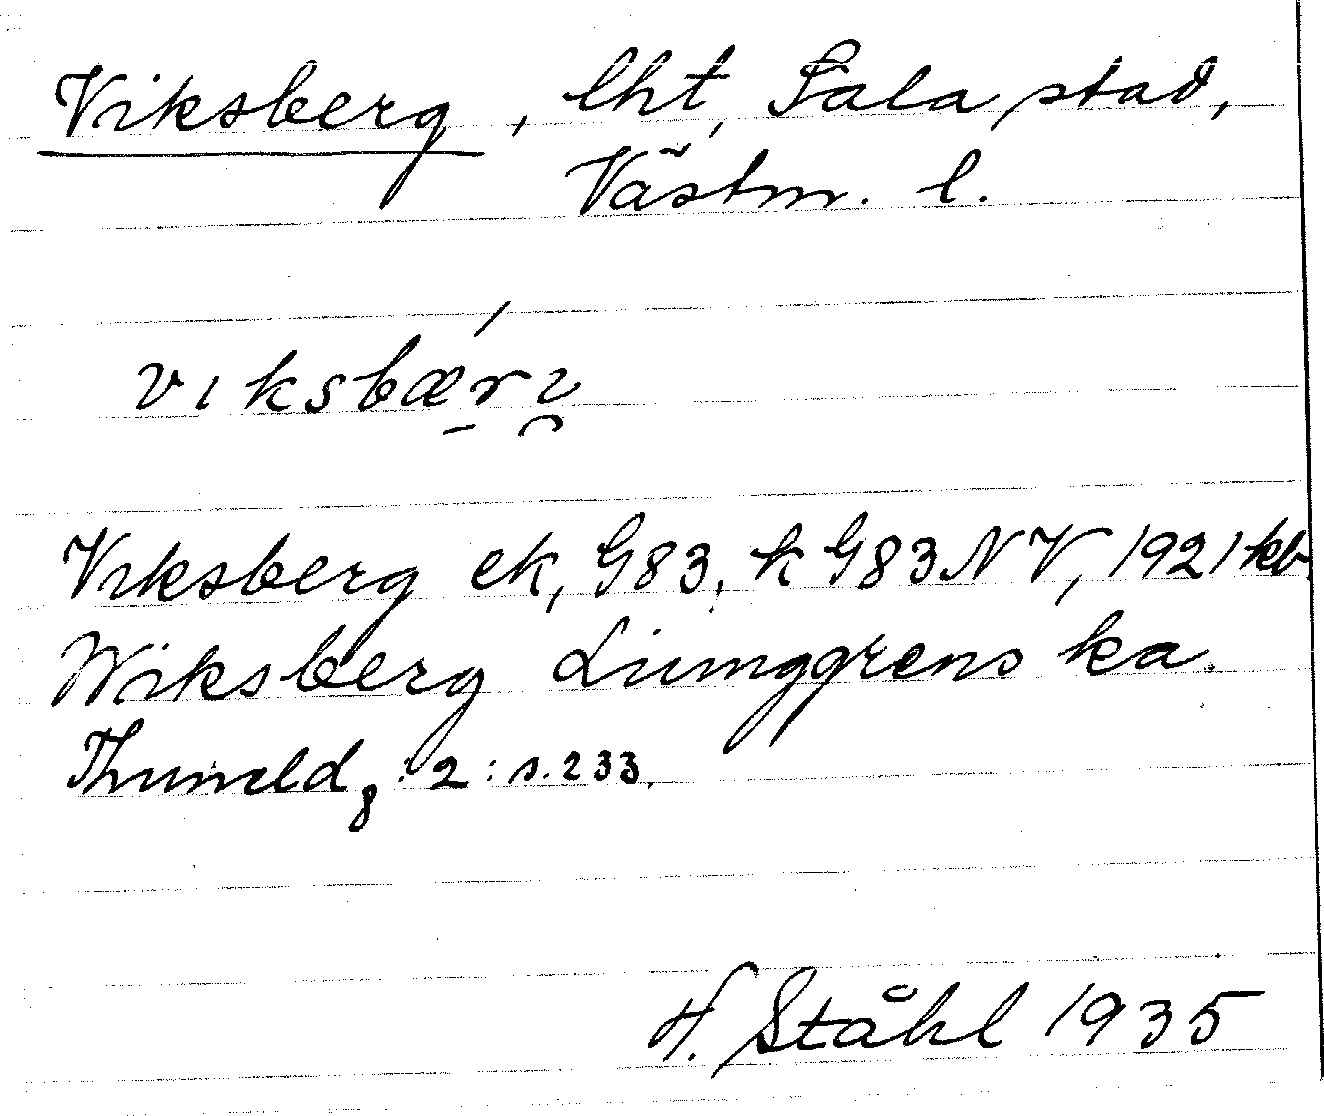 Viksberg, lht, Sala stad,
Västm. l.
vıksbærı̯
Viksberg ek, G83, k G83NV, 1921 kb.
Wiksberg Ljunggrens ka.
Thuneld 8:2:s.233.
H. Ståhl 1935